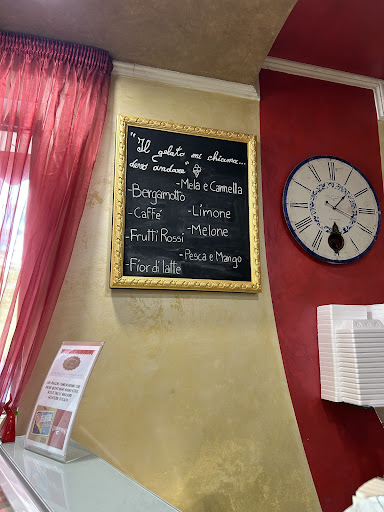 "Il gelato mi chiama...
devo andare"
-Mela e Cannella
-Bergamotto
-Caffé
-Limone
-Frutti Rossi
-Melone
-Pesca e Mango
-Fior di latte